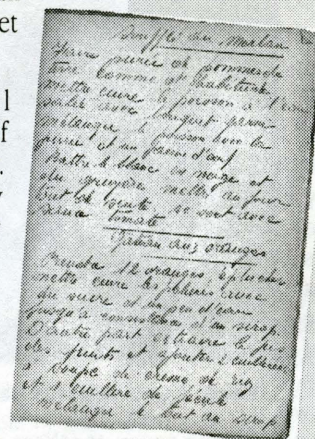 et
l
f
Soufflé au merlan
Faire purée de pommes de
terre comme d'habitude
mettre cuire le poisson à l'eau
salée avec bouquet garni
mélanger le poisson avec la
purée et un jaune d'œuf
Battre le blanc en neige et
du gruyère mettre au four
sauce tomate
Gateau aux oranges
Prendre 12 oranges éplucher
mettre cuire les pelures avec
du sucre et un peu d'eau
jusqu'à consistance d'un sirop
D'autre part extraire le jus
des fruits et ajouter 2 cuillerées
à soupe de crème de riz
et 1 cuillere de
mélanger le tout au sirop